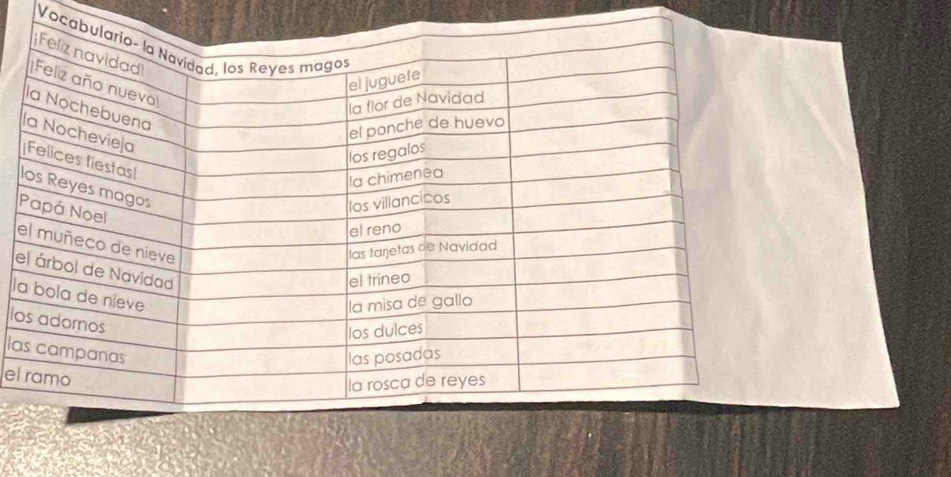 Vocabulario- la Navidad, los Reyes magos
¡Feliz navidad!
el juguete
¡Feliz año nuevo!
la flor de Navidad
la Nochebuena
el ponche de huevo
la Nochevieja
los regalos
¡Felices fiestas!
la chimenea
los Reyes magos
los villancicos
Papá Noel
el reno
el muñeco de nieve
las tarjetas de Navidad
el árbol de Navidad
el trineo
la bola de nieve
la misa de gallo
los adornos
los dulces
las campanas
las posadas
el ramo
la rosca de reyes